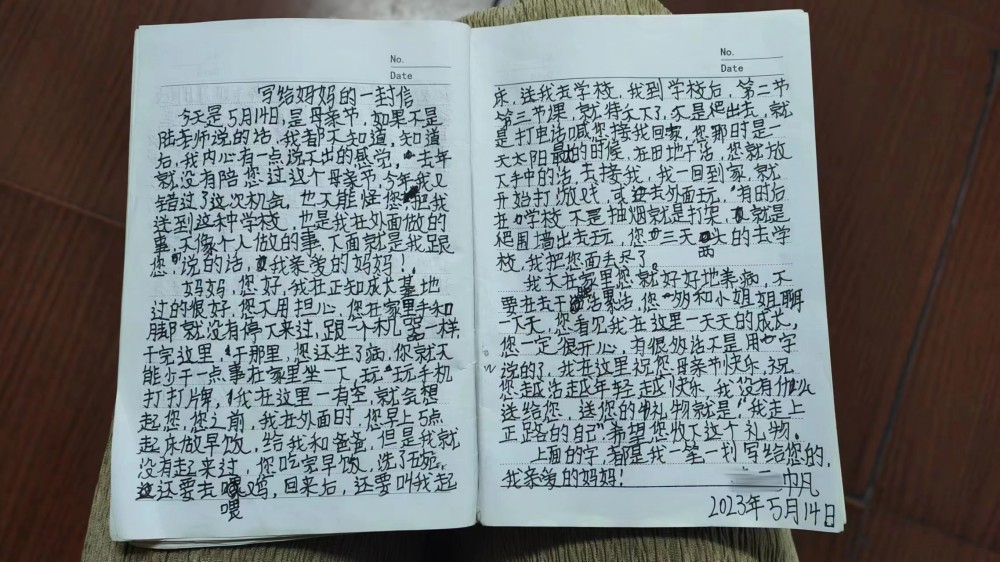 No.
Date
写给妈妈的一封信
今天是5月14日,是母亲节,如果不是
陆老师说的话,我都不知道,知道
后,我内心有一点说不出的感觉,去年
就没有陪您过这个母亲节,今年我又
错过了这次机会,也不能怪您把我
送到这种学校,也是我在外面做的
事,不像个人做的事,下面就是我跟
您说的话,我亲爱的妈妈!
妈妈,您好,我在正知成长基地
过的很好,您不用担心,您在家里手和
脚就没有停下来过,跟一个机器一样,
干完这里,干那里,您还生了病,你就不
能少干一点事在家里坐一下玩玩手机
打打牌,我在这里一有空,就会想
起您,您之前,我在外面日,您早上5点
起床做早饭,给我和爸爸,但是我就
没有起来过,您吃完早饭,洗了碗,
还要去喂鸡,回来后,还要叫我起
喂
No.
Date
床,送我去学校,我到学校后,第二节
第三节课,就待久了,不是爬出去,就
是打电话喊您接我回家,您那时是一
天太阳最大的时候,在田地干活,您就放
下手中的活,去接我,我一回到家,就
开始打游戏,或去外面玩,有时后
在学校不是抽烟就是打架,就是
爬围墙出去玩,您三天头的去学
两
校,我把您面丢尽了。
我不在家里您就好好地养病,不
要在去干活,您和小姐姐聊
一天天,您看见我在这里一天天的成长,
您一定很开心,有很多话不是用字
说的了,我在这里祝您母亲节快乐,祝
您越活越年轻越快乐,我没有什么
送给您,送您的礼物就是“我走上
正路的自己”希望您收下这个礼物。
上面的字,都是我一笔一划写给您的,
我亲爱的妈妈! 帆
2023年5月14日